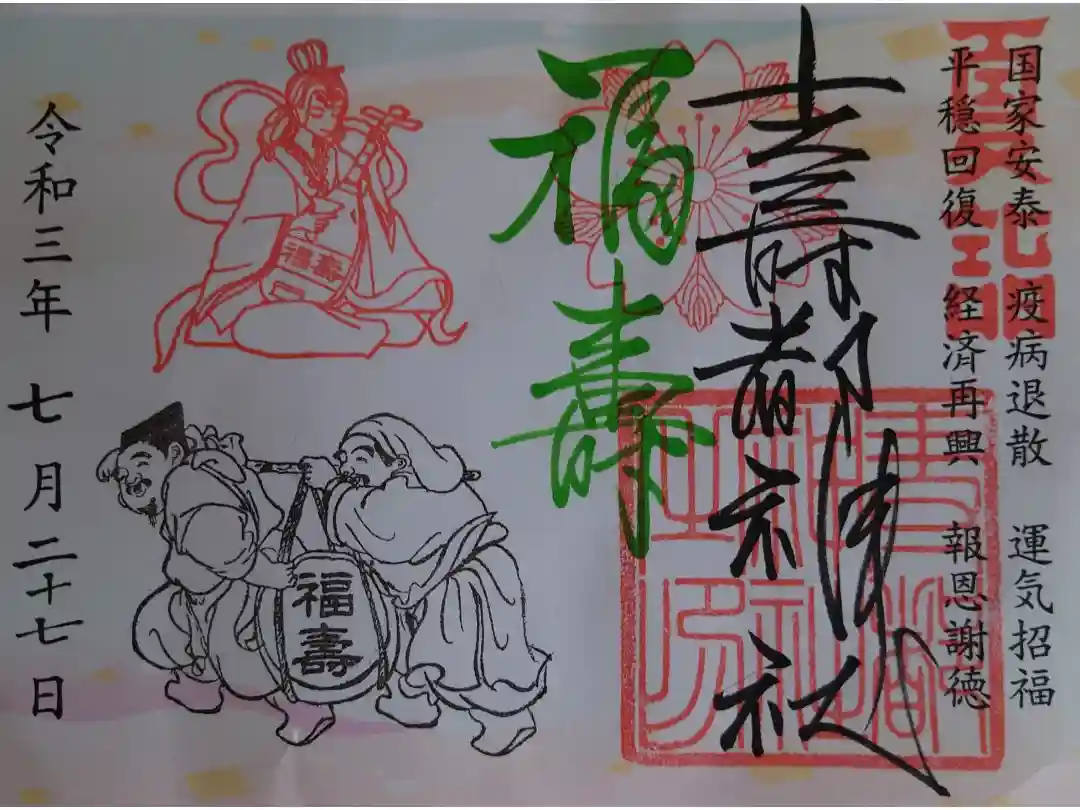 国家安泰 疫病退散 運気招福
平穏回復 経済再興 報恩謝徳
壽都神社
壽都
神社
之印
福壽
福壽
令和三年 七月二十七日